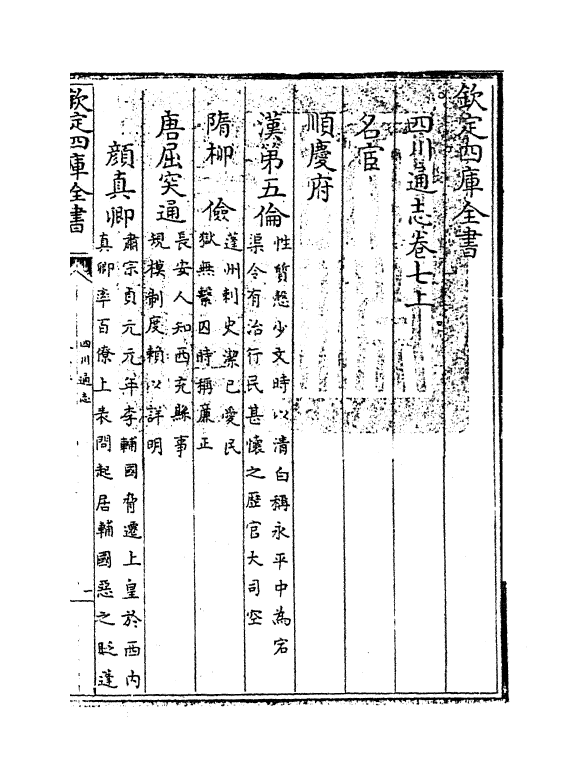 欽定四庫全書
四川通志卷七上
名宦
順慶府
漢第五倫
性質慤少文時以清白稱永平中為宕
渠令有治行民甚懷之歴官大司空
隋柳儉
蓬州刺史潔已愛民
獄無繫囚時稱廉正
唐屈突通
長安人知西充縣事
規模制度賴以詳明
顔真卿
肅宗貞元元年李輔國脅遷上皇於西内
真卿率百僚上表問起居輔國惡之貶蓬
欽定四庫全書
四川通志
一